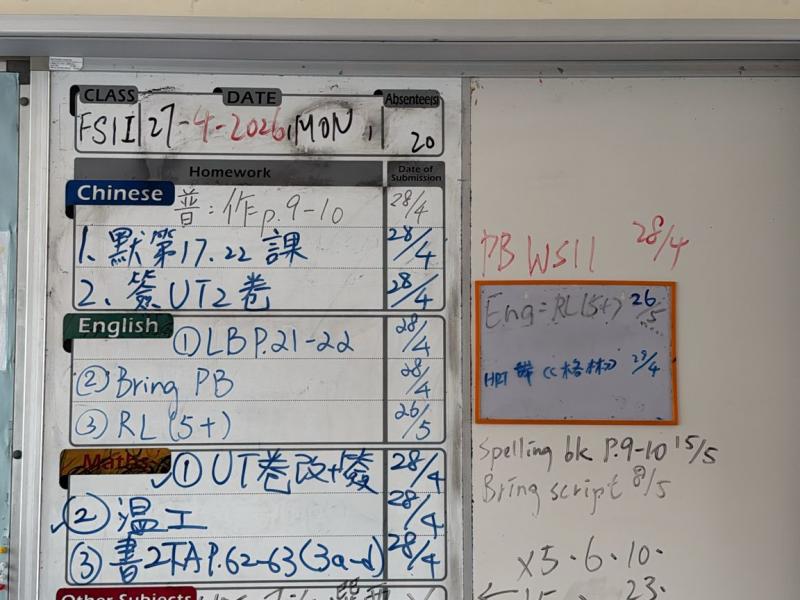 CLASS DATE Absentee(s)
FS1I 27-4-2026, MON, 20
Homework Date of Submission
Chinese 普:作p.9-10 28/4
1. 默第17.22課 28/4
2. 簽UT2卷 28/4
English ①LB P.21-22 28/4
②Bring PB 28/4
③RL(5+) 26/5
Maths ①UT卷改+簽 28/4
②温工 28/4
③書2TA P.62-63(3a-d) 28/4
Other Subjects
PB WS11 28/4
Eng=RL(5+) 26/5
<<格林>> 28/4
Spelling bk P.9-10 15/5
Bring script 8/5
×5.6.10.
23.